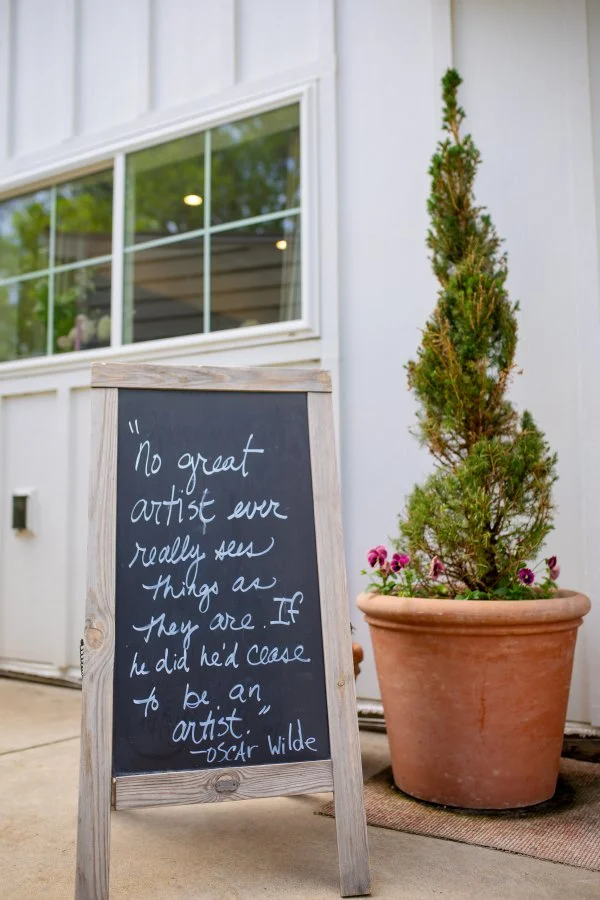 "No great
artist ever
really sees
things as
they are. If
he did he'd cease
to be an
artist."
-OSCAr Wilde